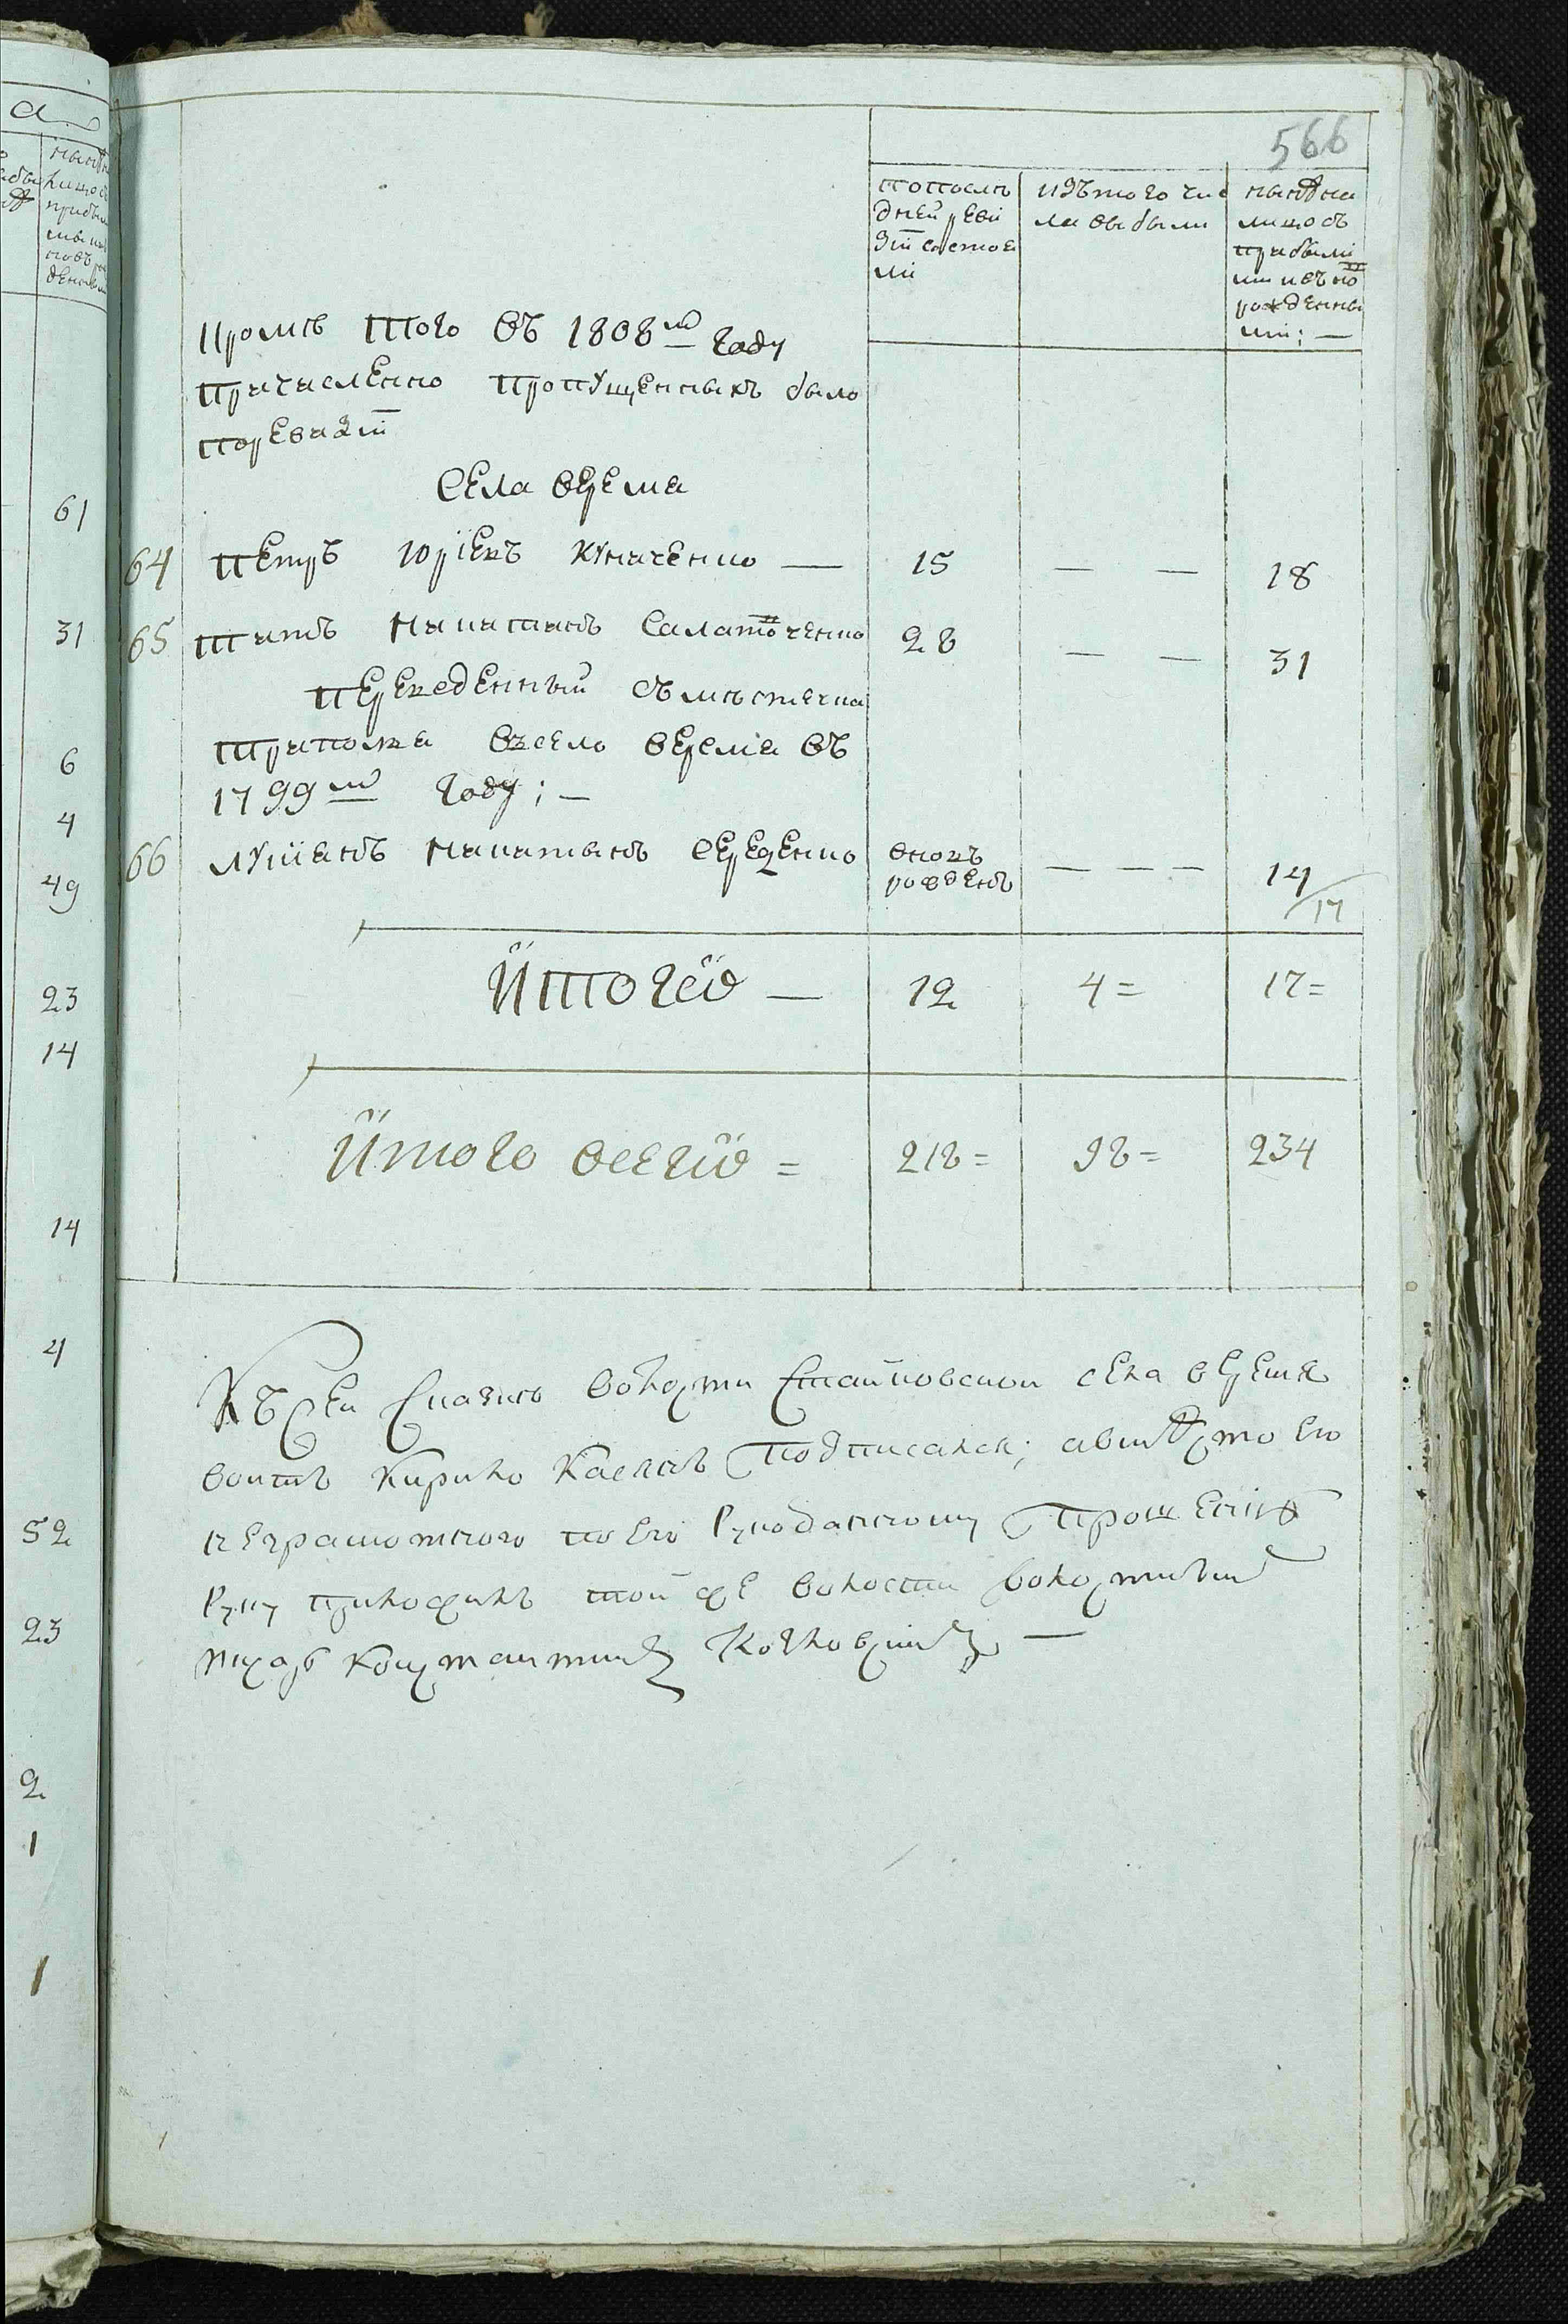 566
попослѣ
дней реви
зіи состоя
ли
изътого чис
ла выбыли
нынѣ на
лицо съ
прибыли
ми и въно
рожденны
ми; —
Кромѣ того въ 1808ᵐ году
причисленно пропущенныхъ было
поревизіи
села Вереміа
64 Петръ Юріевъ Куниченко — 15 — — 18
65 Титъ Игнатіевъ Салаточенко 28 — — 31
переведенный съмѣстечка
Триполя въсело Веремія въ
1799ᵐ году; —
66 Лукіанъ Игнатьевъ Середенко вновъ рожденъ — — — 14
17
Итого — 12 4= 17=
Итого всего = 218= 98= 234
Къ сей сказкѣ волости Стайковской села Веремя
войтъ Кирило подписался; а вмѣсто его
неграмотного по его рукоданному прошенію
руку приложилъ той же волости волостный
писарь Константинъ
61
31
6
4
49
23
14
14
4
52
23
2
1
1